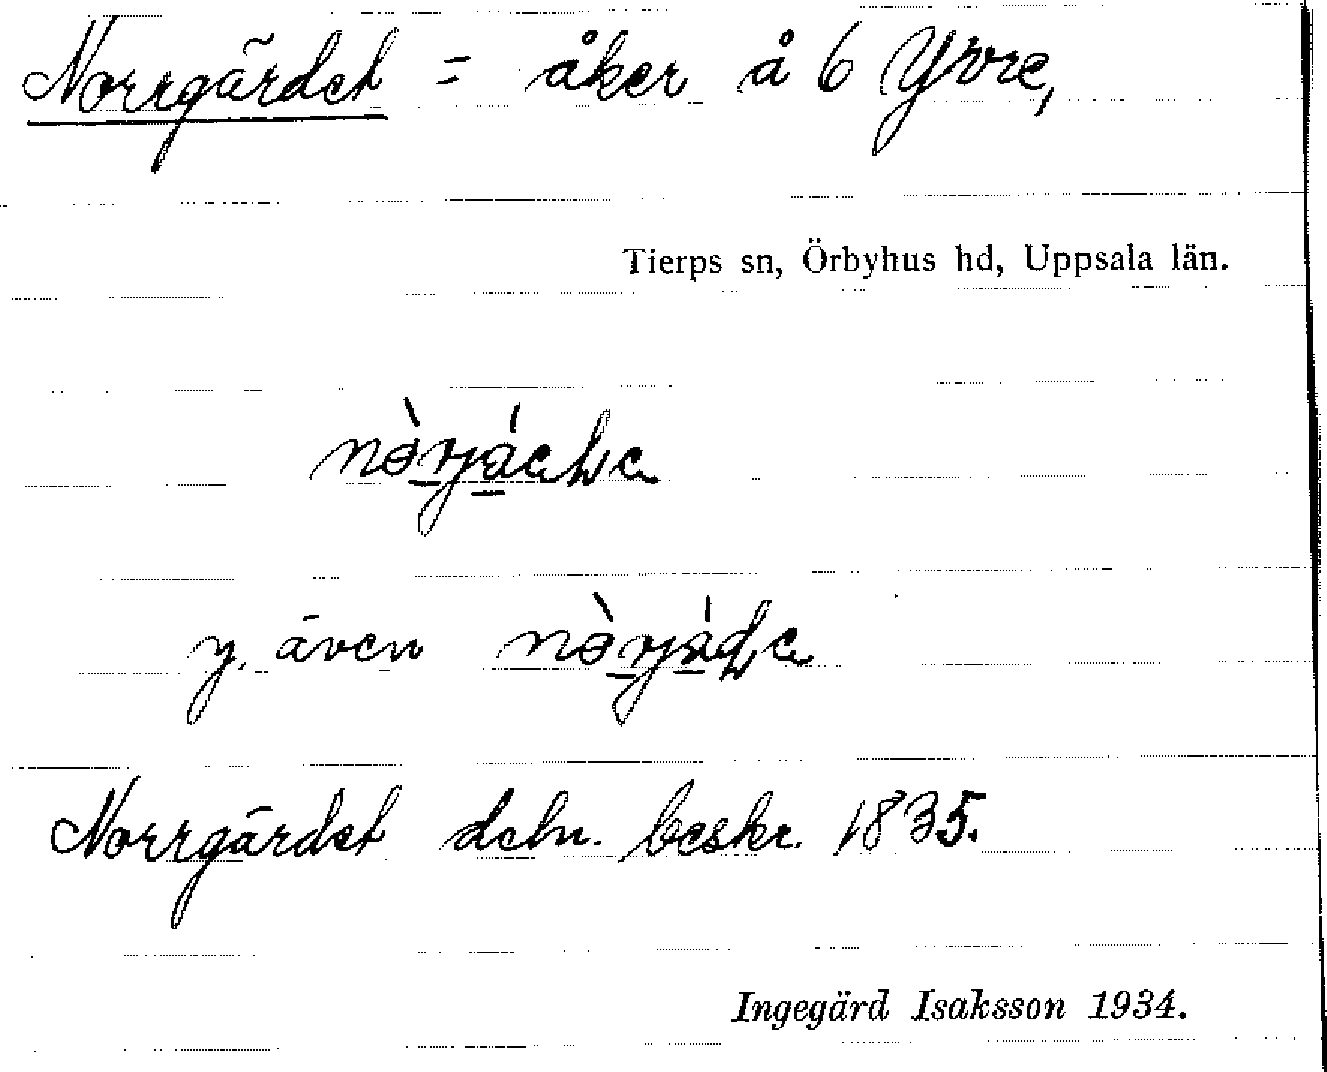 Norrgärdet = åker å 6 Yvre,
Tierps sn, Örbyhus hd, Uppsala län.
y. även
Norrgärdet deln. beskr. 1835.
Ingegärd Isaksson 1934.